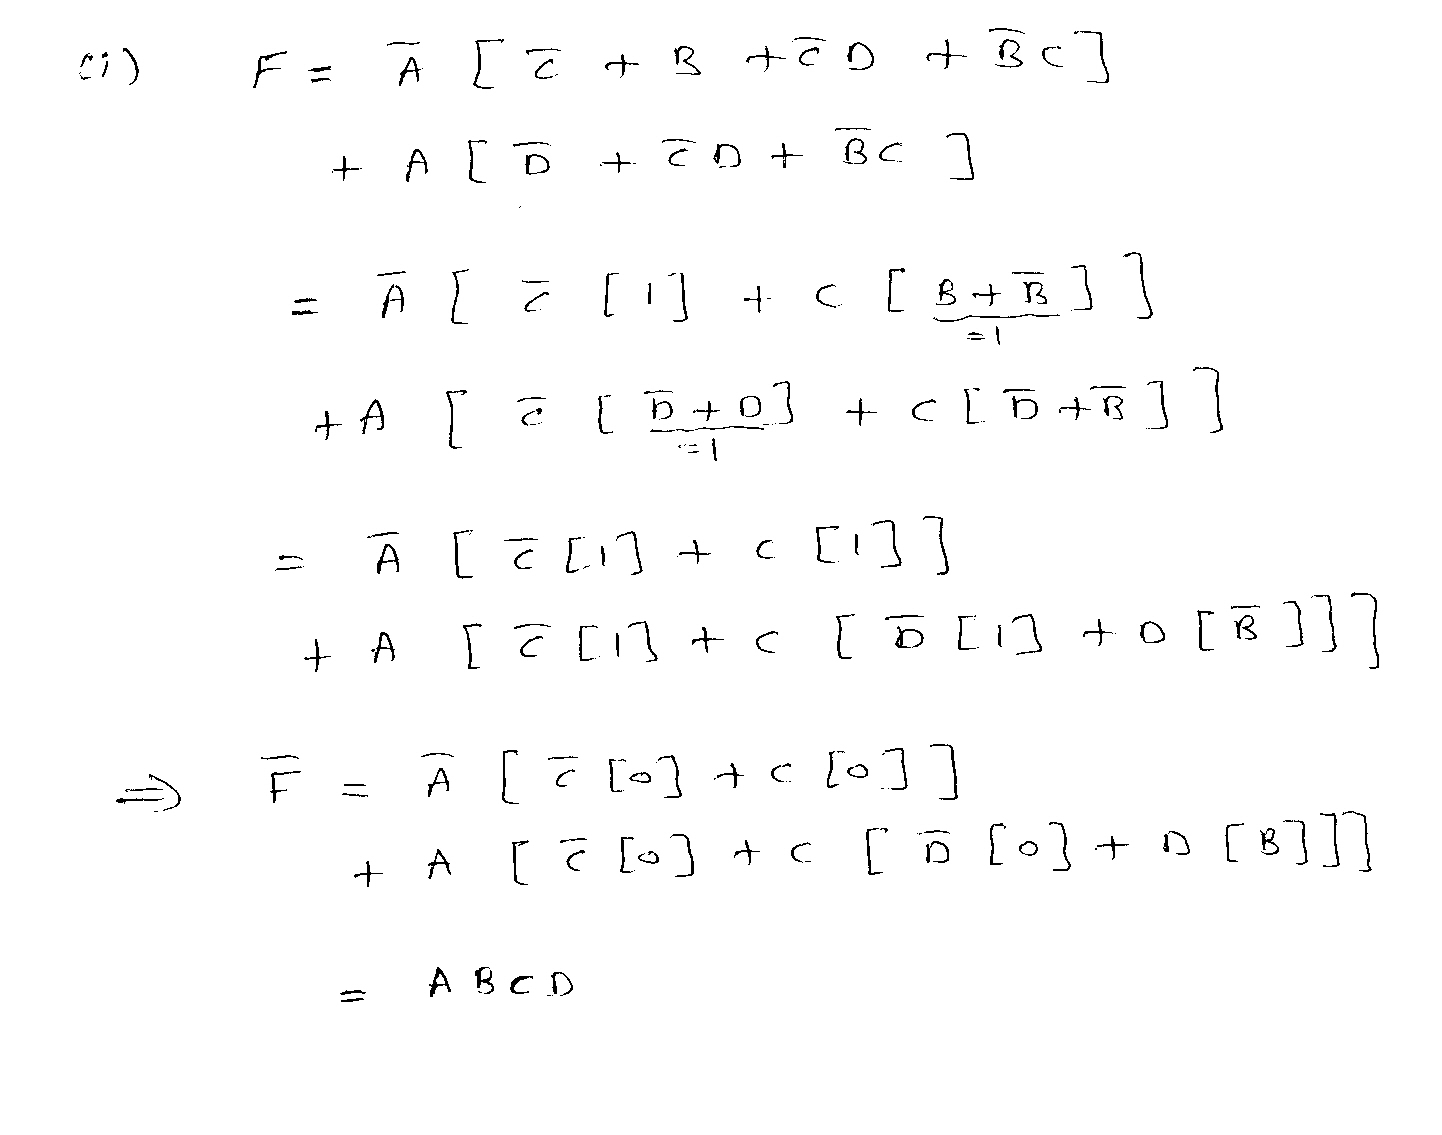 (i) F = A̅ [ C̅ + B + C̅ D + B̅ C ]
+ A [ D̅ + C̅ D + B̅ C ]
= A̅ [ C̅ [ 1 ] + C [ B + B̅ ] ]
= 1
+ A [ C̅ [ D̅ + D ] + C [ D̅ + B̅ ] ]
= 1
= A̅ [ C̅ [1] + C [1] ]
+ A [ C̅ [1] + C [ D̅ [1] + D [ B̅ ] ] ]
⇒ F̅ = A̅ [ C̅ [0] + C [0] ]
+ A [ C̅ [0] + C [ D̅ [0] + D [ B ] ] ]
= A B C D